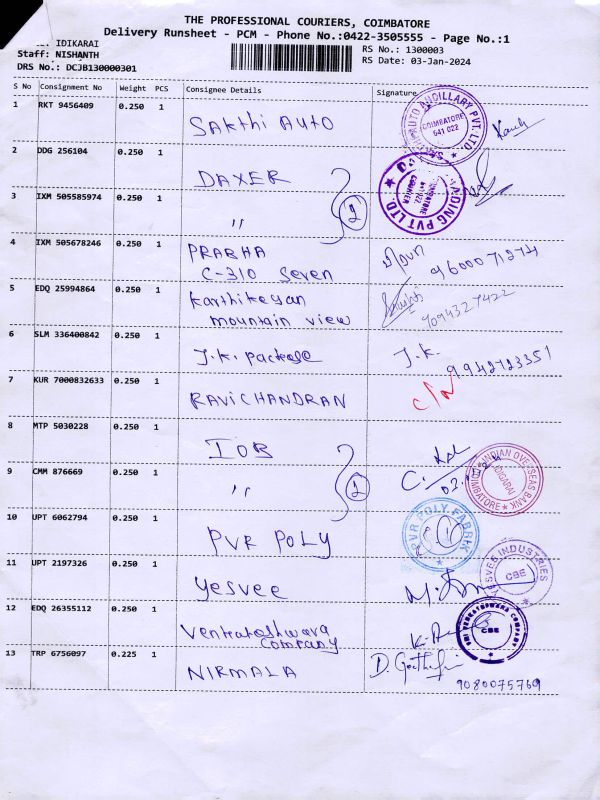 THE PROFESSIONAL COURIERS, COIMBATORE
Delivery Runsheet - PCM - Phone No.:0422-3505555 - Page No.:1
IDIKARAI
Staff: NISHANTH
RS No.: 1300003
DRS No.: DCJB130000301
RS Date: 03-Jan-2024
S No Consignment No Weight PCS Consignee Details Signature
1 RKT 9456409 0.250 1
SAKthi AUTO
COIMBATORE
641 022
2 DDG 256104 0.250 1
DAXER
3 IXM 505585974 0.250 1
" 2
4 IXM 505678246 0.250 1
PRABHA
C-310 Seven
9600071274
5 EDQ 25994864 0.250 1
Karthikeyan
mountain view
7094327422
6 SLM 336400842 0.250 1
J.K. package J.K. 9942723351
7 KUR 7000832633 0.250 1
RAVICHANDRAN
8 MTP 5030228 0.250 1
IOB
INDIAN OVERSEAS BANK
IDIGARAI
COIMBATORE
9 CMM 876669 0.250 1
" 2
10 UPT 6062794 0.250 1
PVR POLY
PVR POLY FABRIK
11 UPT 2197326 0.250 1
Yesvee
YESVEE INDUSTRIES
CBE
12 EDQ 26355112 0.250 1
Venkateshwara
Company
SRI VENKATESHWARA COMPANY
CBE
13 TRP 6756097 0.225 1
NIRMALA
9080075769